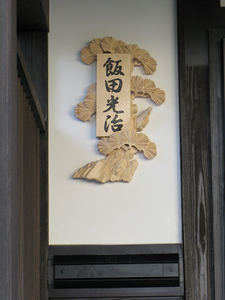 飯田光治